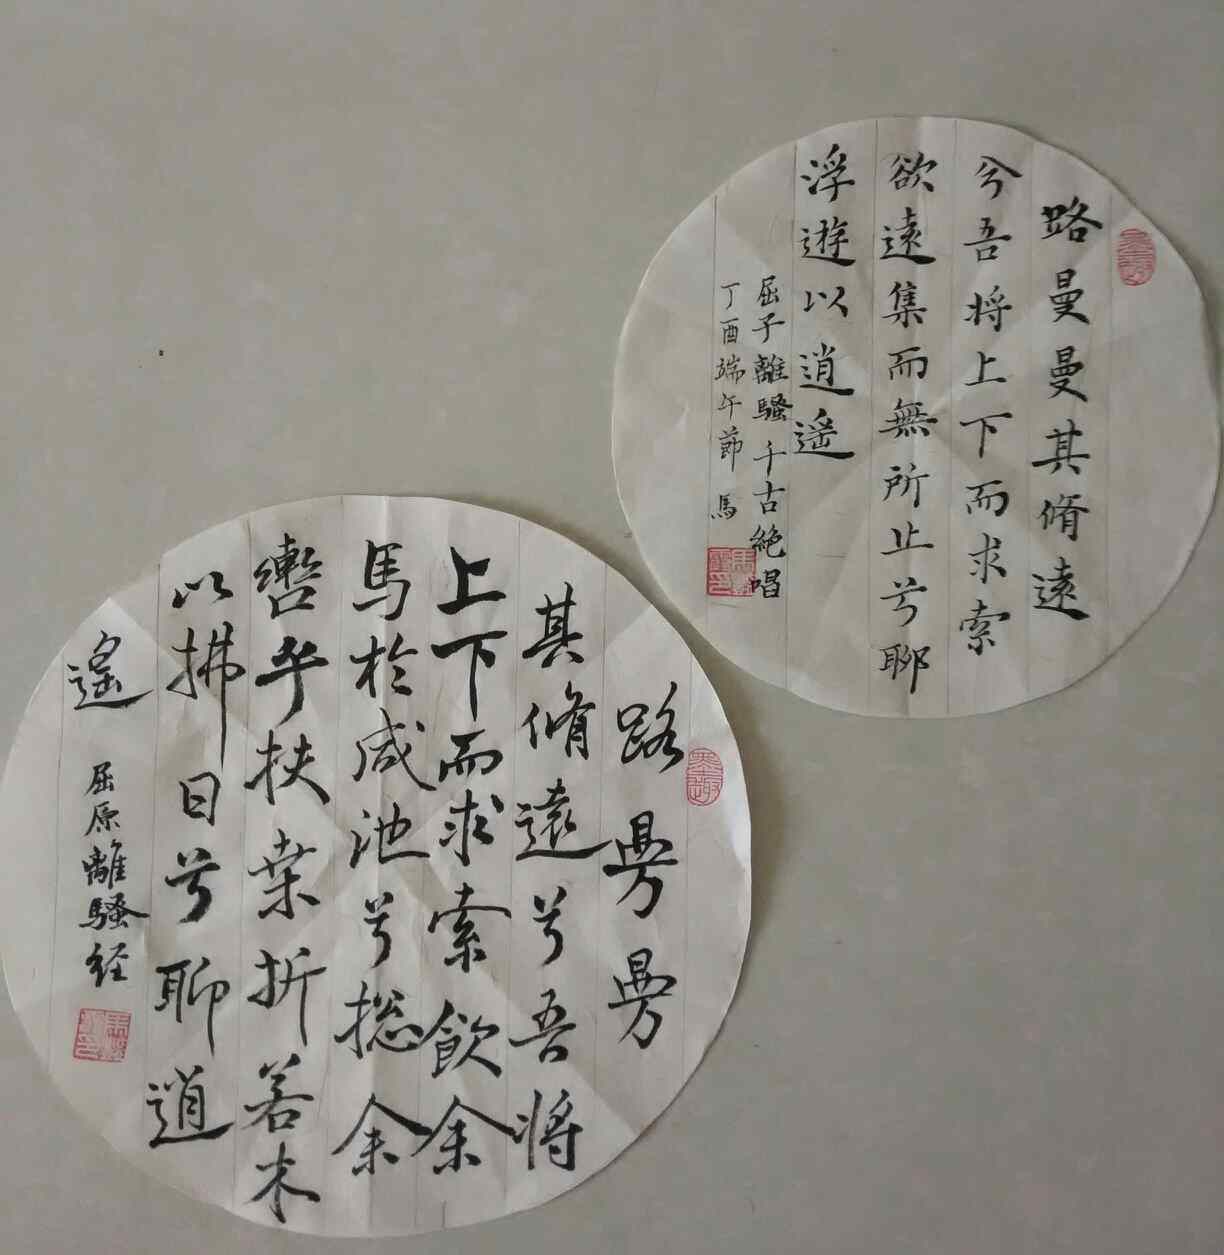 路曼曼其脩遠
兮吾将上下而求索
欲遠集而無所止兮聊
浮遊以逍遥
屈子離騷千古絶唱
丁酉端午節 馬
路曼曼
其脩遠兮吾将
上下而求索飲余
馬於咸池兮揔余
轡乎扶桒折若木
以拂日兮聊逍
遥
屈原離騷经